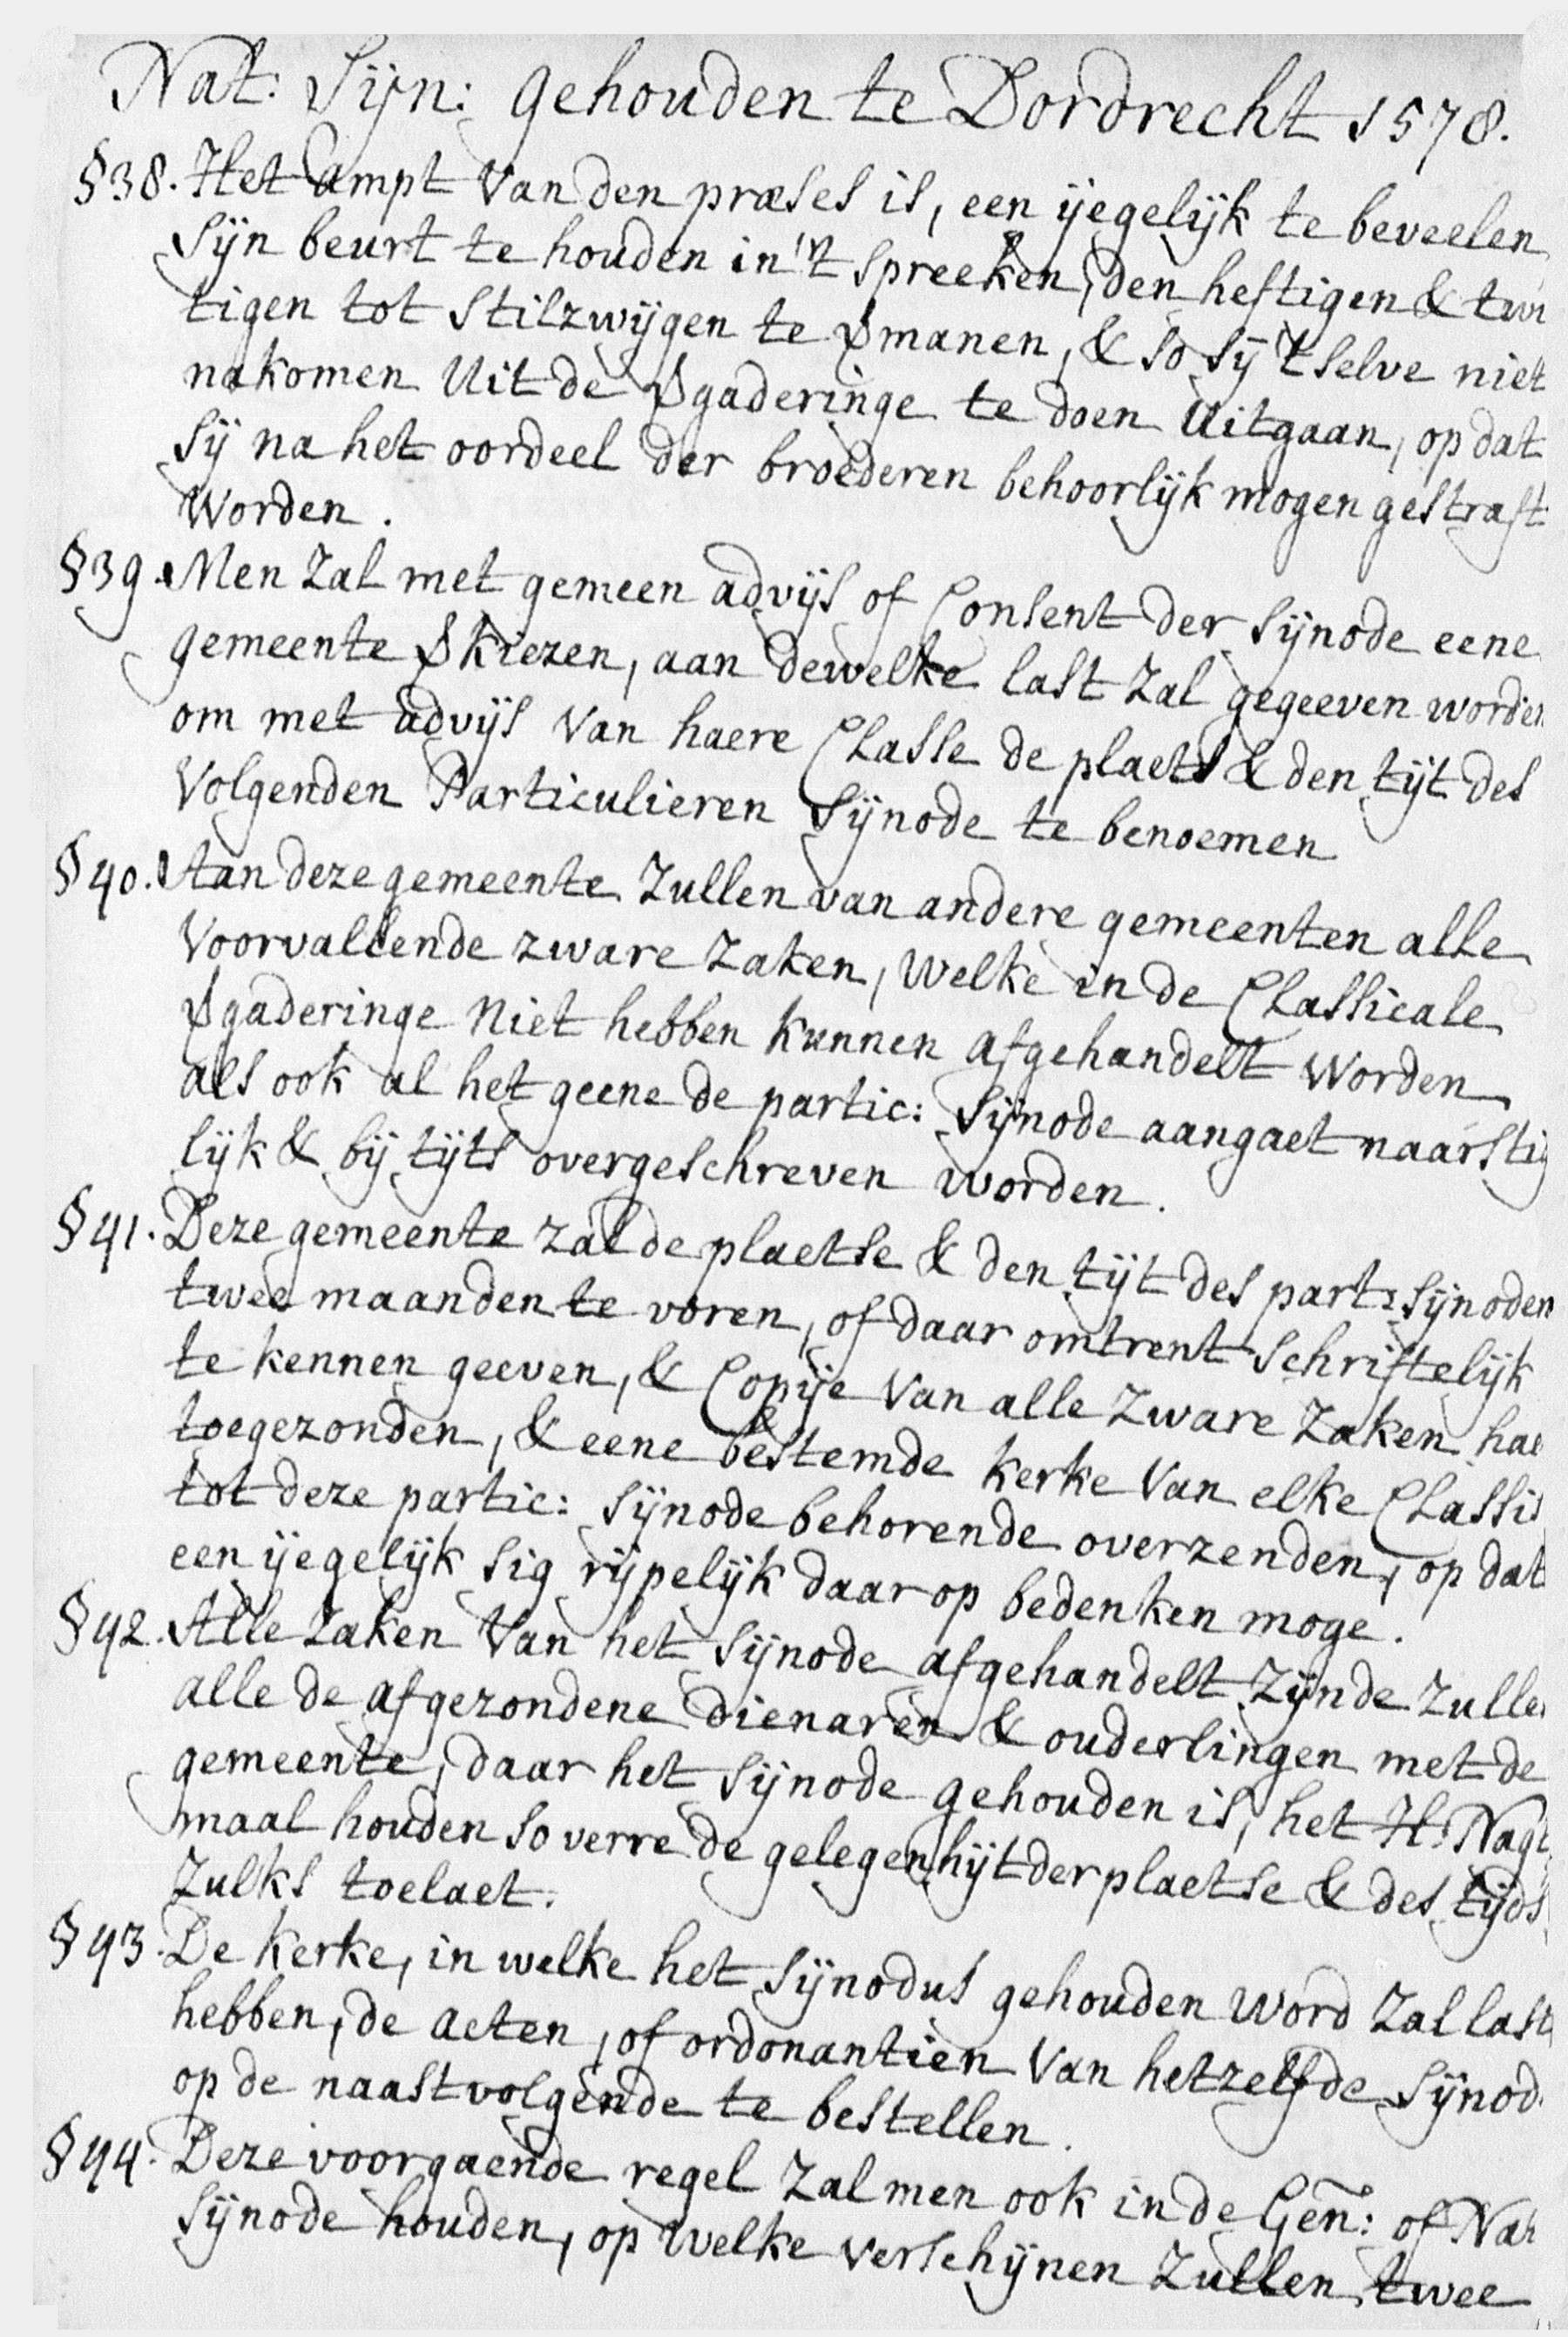 Nat: Sijn: gehouden te Dordrecht 1578.
§38. Het ampt van den præses is, een ijegelijk te beveelen
sijn beurt te houden in 't spreeken, den heftigen & twi
tigen tot stilzwijgen te Vmanen, & so sij 't selve niet
nakomen uit de Vgaderinge te doen uitgaan, op dat
sij na het oordeel der broederen behoorlijk mogen gestraft
worden.
§39. Men zal met gemeen advijs of Consent der sijnode eene
gemeente Vkiezen, aan dewelke last zal gegeeven worden
om met advijs van haere Classe de plaets & den tijt des
volgenden Particulieren Sijnode te benoemen
§40. Aan deze gemeente zullen van andere gemeenten alle
voorvallende zware zaken, welke in de Classicale
Vgaderinge niet hebben kunnen afgehandelt worden
als ook al het geene de partic: Sijnode aangaet naarstig
lijk & bij tijts overgeschreven worden.
§41. Deze gemeente zal de plaetse & den tijt des part: sijnoden
twee maanden te voren, of daar omtrent schriftelijk
te kennen geeven, & Copije van alle zware zaken hae
toegezonden, & eene bestemde kerke van elke Classis
tot deze partic: sijnode behorende overzenden, op dat
een ijegelijk sig rijpelijk daar op bedenken moge.
§42. Alle zaken van het sijnode afgehandelt zijnde zulle
alle de afgezondene dienaren & ouderlingen met de
gemeente, daar het sijnode gehouden is, het H: Nagt
maal houden so verre de gelegenhijt der plaetse & des tijds
zulks toelaet.
§43. De kerke, in welke het sijnodus gehouden word zal last
hebben, de acten, of ordonantien van hetzelfde sijnod
op de naastvolgende te bestellen.
§44. Deze voorgaende regel zal men ook in de Gen̄: of Nat
sijnode houden, op welke verschijnen zullen twee